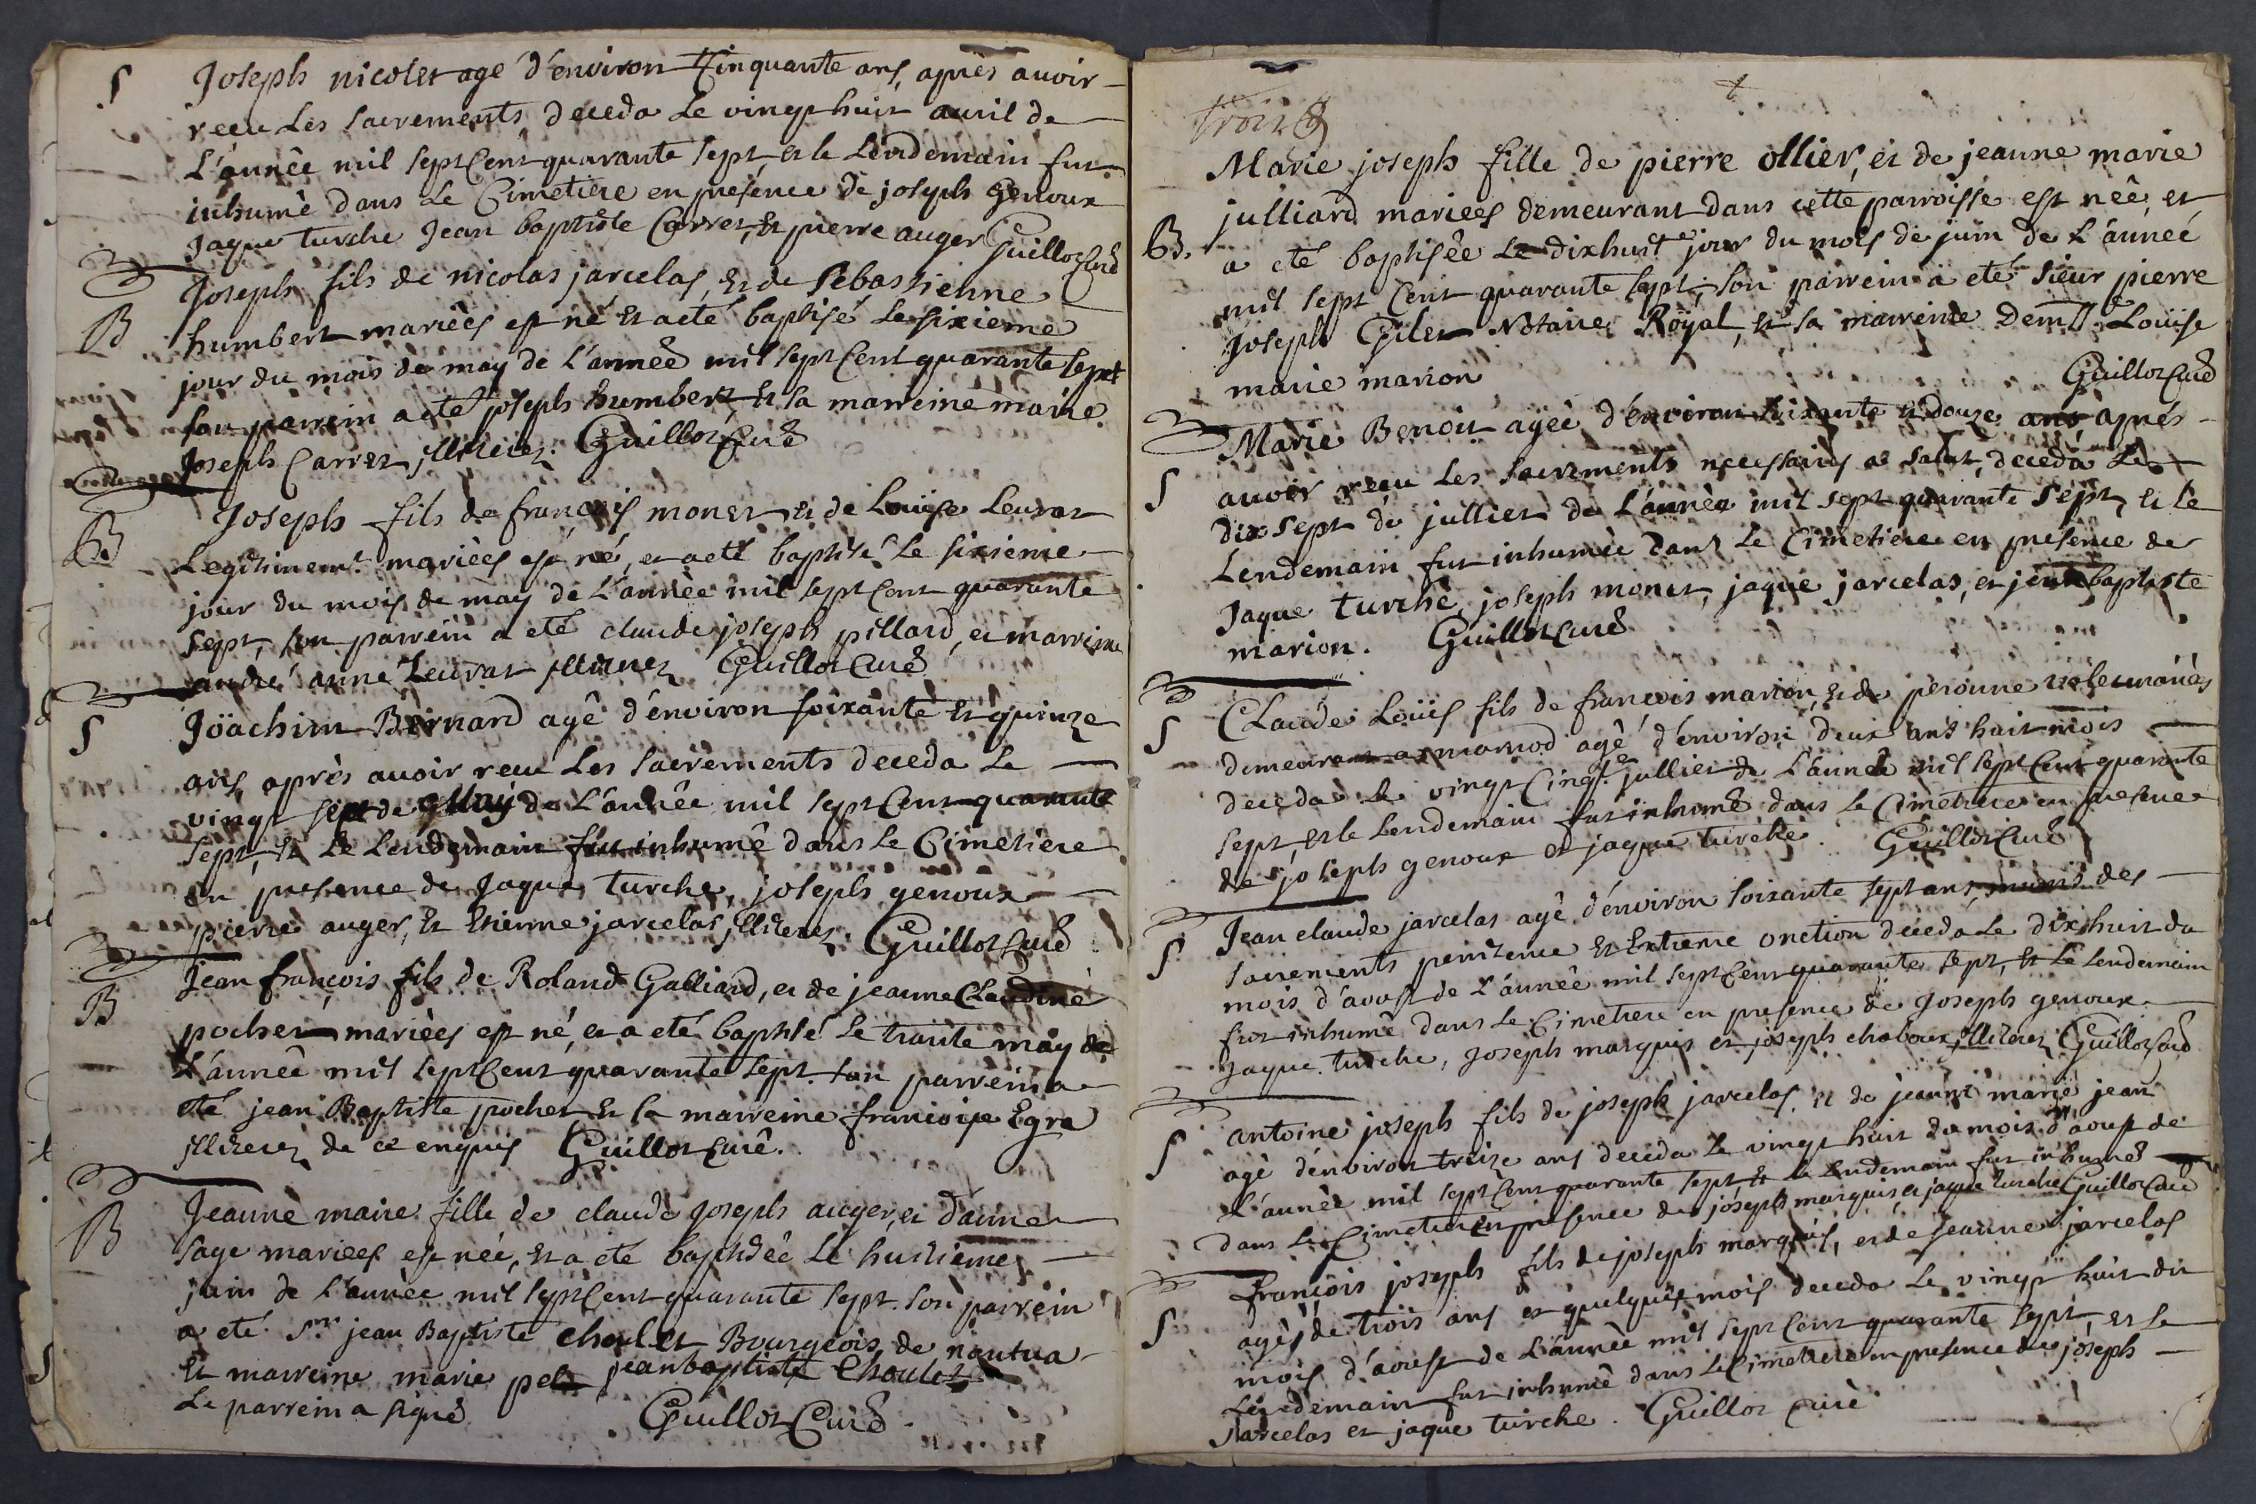 S Joseph nicolet agé d'environ Cinquante ans, après auoir
receu Les sacrements deceda Le vingt huit auril de
L'année mil sept Cent quarante sept et le Lendemain fut
inhumé dans Le Cimetiere en présence de joseph genoux
Jaque turche Jean baptiste Carret, et pierre auger Guillot Curé
Joseph fils de nicolas jarcelas, et de Sebastienne
B humbert mariées est né et a eté baptisé Le sixieme
jour du mois de may de L'année mil sept Cent quarante sept
son parrein a eté joseph humbert, et sa marreine marie
Joseph Carret illiterez. Guillot Curé
Joseph fils de francois monet et de Louise Leurat
B Legitiment mariées est né, et a eté baptisé Le sixieme
jour du mois de may de L'année mil sept Cent quarante
sept, son parrein a eté claude joseph pillard, et marreine
andré anne Leurat illiterez Guillot Curé
S Joachim Bernard agé d'environ soixante et quinze
ans, après auoir receu Les sacrements deceda Le
vingt sept de May de L'année mil sept Cent quarante
sept, et Le Lendemain fut inhumé dans Le Cimetiere
en presence de Jaque turche, joseph genoux
pierre auger, et Etienne jarcelas, illiterez. Guillot Curé
Jean francois fils de Roland Galliard, et de jeanne Claudine
B pochet mariées est né, et a eté baptisé Le trante may de
L'année mil sept Cent quarante sept. son parrein a
eté jean Baptiste pochet et sa marreine francoise Egra
illiterez de ce enquis Guillot Curé.
Jeanne marie fille de claude joseph auger, et d'anne
B sage mariees est née, et a eté baptisée Le huitieme
juin de L'année mil sept Cent quarante sept. son parrein
a eté Sr. jean Baptiste choulet Bourgeois de nantua
et marreine marie pel jean baptiste Choulet
Le parrein a signé Guillot Curé.
trois
Marie joseph fille de pierre ollier, et de jeanne marie
julliard mariees demeurant dans cette parroisse est née, et
B. a eté baptisée Le dixhuit jour du mois de juin de L'année
mil sept Cent quarante sept, son parrein a eté sieur pierre
Joseph Gilet Notaire Royal, et sa marreine Demlle. Louise
marie marion Guillot Curé
Marie Benoit agée d'environ soixante et douze ans après
S auoir receu Les sacrements necessaires a salut, deceda Le
dix sept de julliet de L'année mil sept quarante sept, et le
Lendemain fut inhumée dans Le Cimetiere en presence de
Jaque turche, joseph monet, jaque jarcelas, et jean baptiste
marion. Guillot Curé
S Claude Louis fils de francois marion, et de peronne violet mariées
demeurant a marnod agé d'environ deux ans huit mois
deceda Le vingt Cinq julliet de L'année mil sept Cent quarante
sept, et le Lendemain fut inhumé dans Le Cimetiere en presence
de joseph genoux et jaque turche. Guillot Curé
Jean claude jarcelas agé d'environ soixante sept ans, munis des
S sacrements penitence et Extreme onction deceda Le dixhuit du
mois d'aoust de L'année mil sept Cent quarante sept, et Le Lendemain
fut inhumé dans Le Cimetiere en presence de Joseph genoux
Jaque turche, Joseph marquis et joseph chaboux, illiterez Guillot Curé
antoine joseph fils de joseph jarcelas, et de jeanne marie jean
S agé d'environ treize ans deceda Le vingt huit du mois d'aoust de
L'année mil sept Cent quarante sept et Le Lendemain fut inhumé
dans Le Cimetiere en presence de joseph marquis, et jaque turche Guillot Curé
francois joseph fils de joseph marquis, et de jeanne jarcelas
S agés de trois ans et quelques mois deceda Le vingt huit du
mois d'aoust de L'année mil sept Cent quarante sept, et Le
Lendemain fut inhumé dans Le Cimetiere en presence de joseph
Jarcelas et jaque turche. Guillot Curé